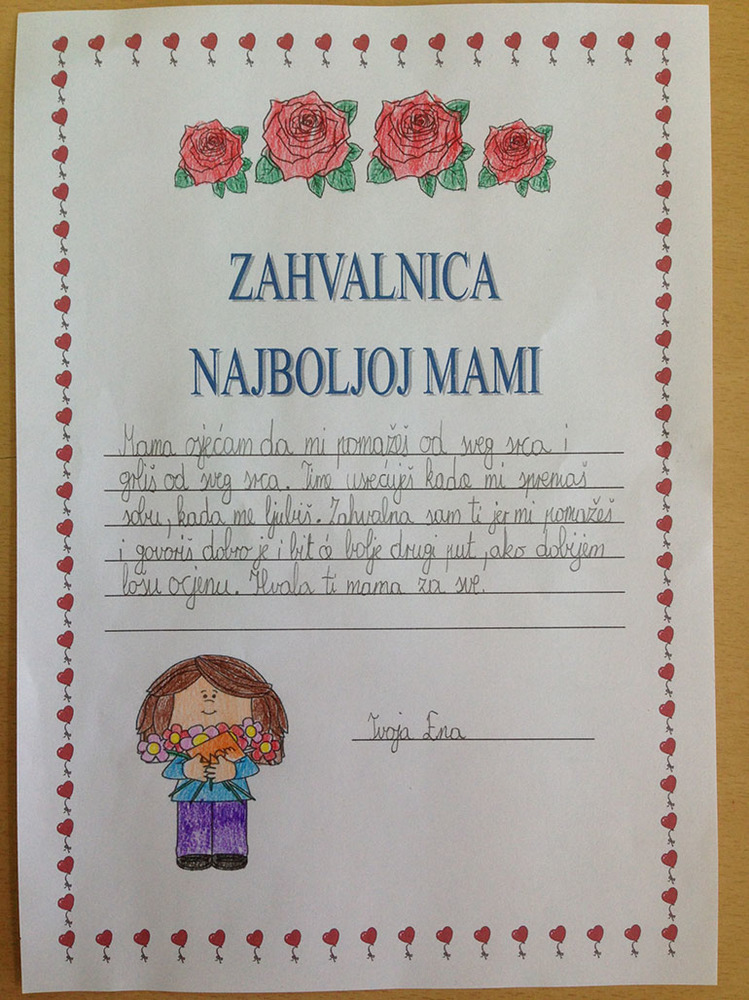 ZAHVALNICA
NAJBOLJOJ MAMI
Mama osjećam da mi pomažeš od sveg srca i
grliš od sveg srca. Time usrećuješ kada mi spremaš
sobu, kada me ljubiš. Zahvalna sam ti jer mi pomažeš
i govoriš dobro je i bit će bolje drugi put, ako dobijem
lošu ocjenu. Hvala ti mama za sve.
Tvoja Ena